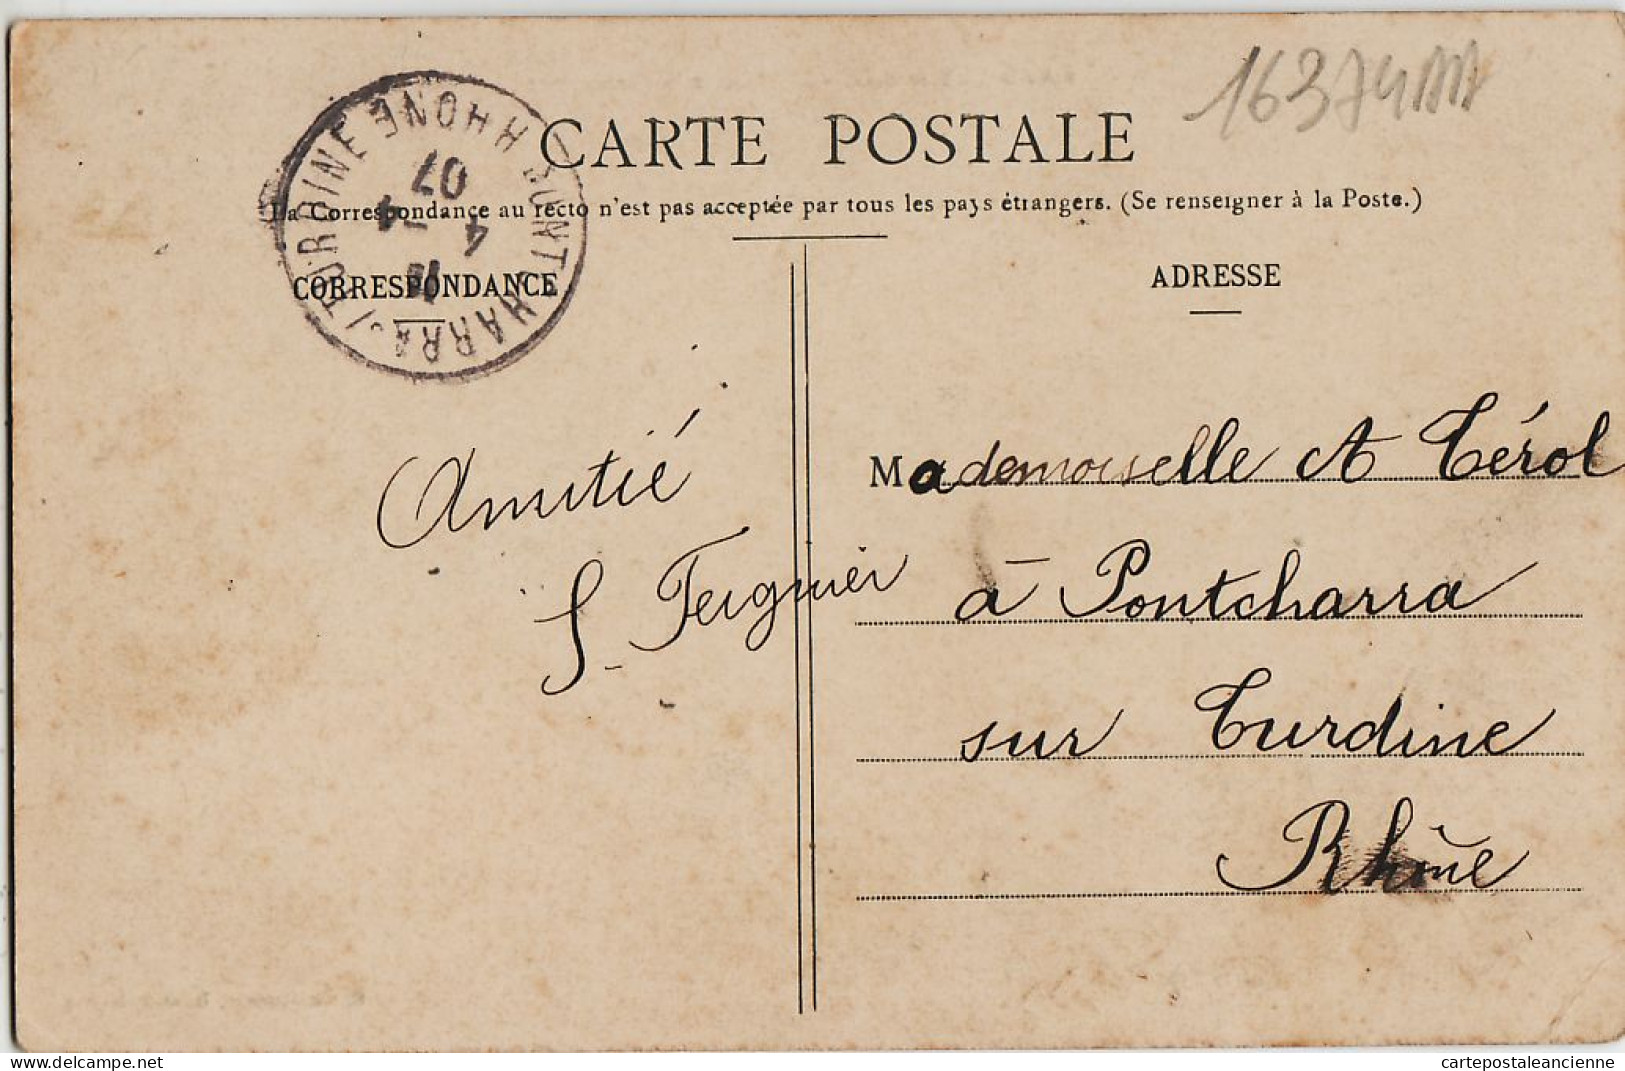 16374
CARTE POSTALE
La Correspondance au recto n'est pas acceptée par tous les pays étrangers. (Se renseigner à la Poste.)
CORRESPONDANCE
ADRESSE
PONTCHARRA S/TURDINE RHONE
4
07
Amitié
S. Feignier
Mademoiselle A Térol
à Pontcharra
sur Turdine
Rhône
delcampe.net
cartepostaleancienne